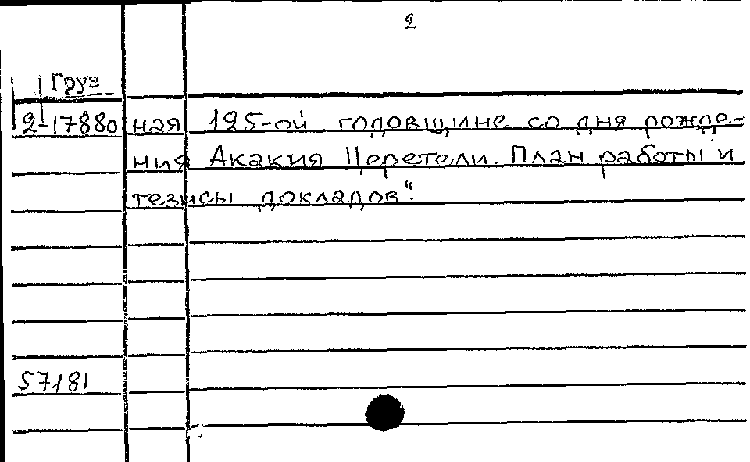 2
Груз
2-17880 ная 125-ой годовщине со дня рожде-
ния Акакия Церетели. План работы и
тезисы докладов".
57181